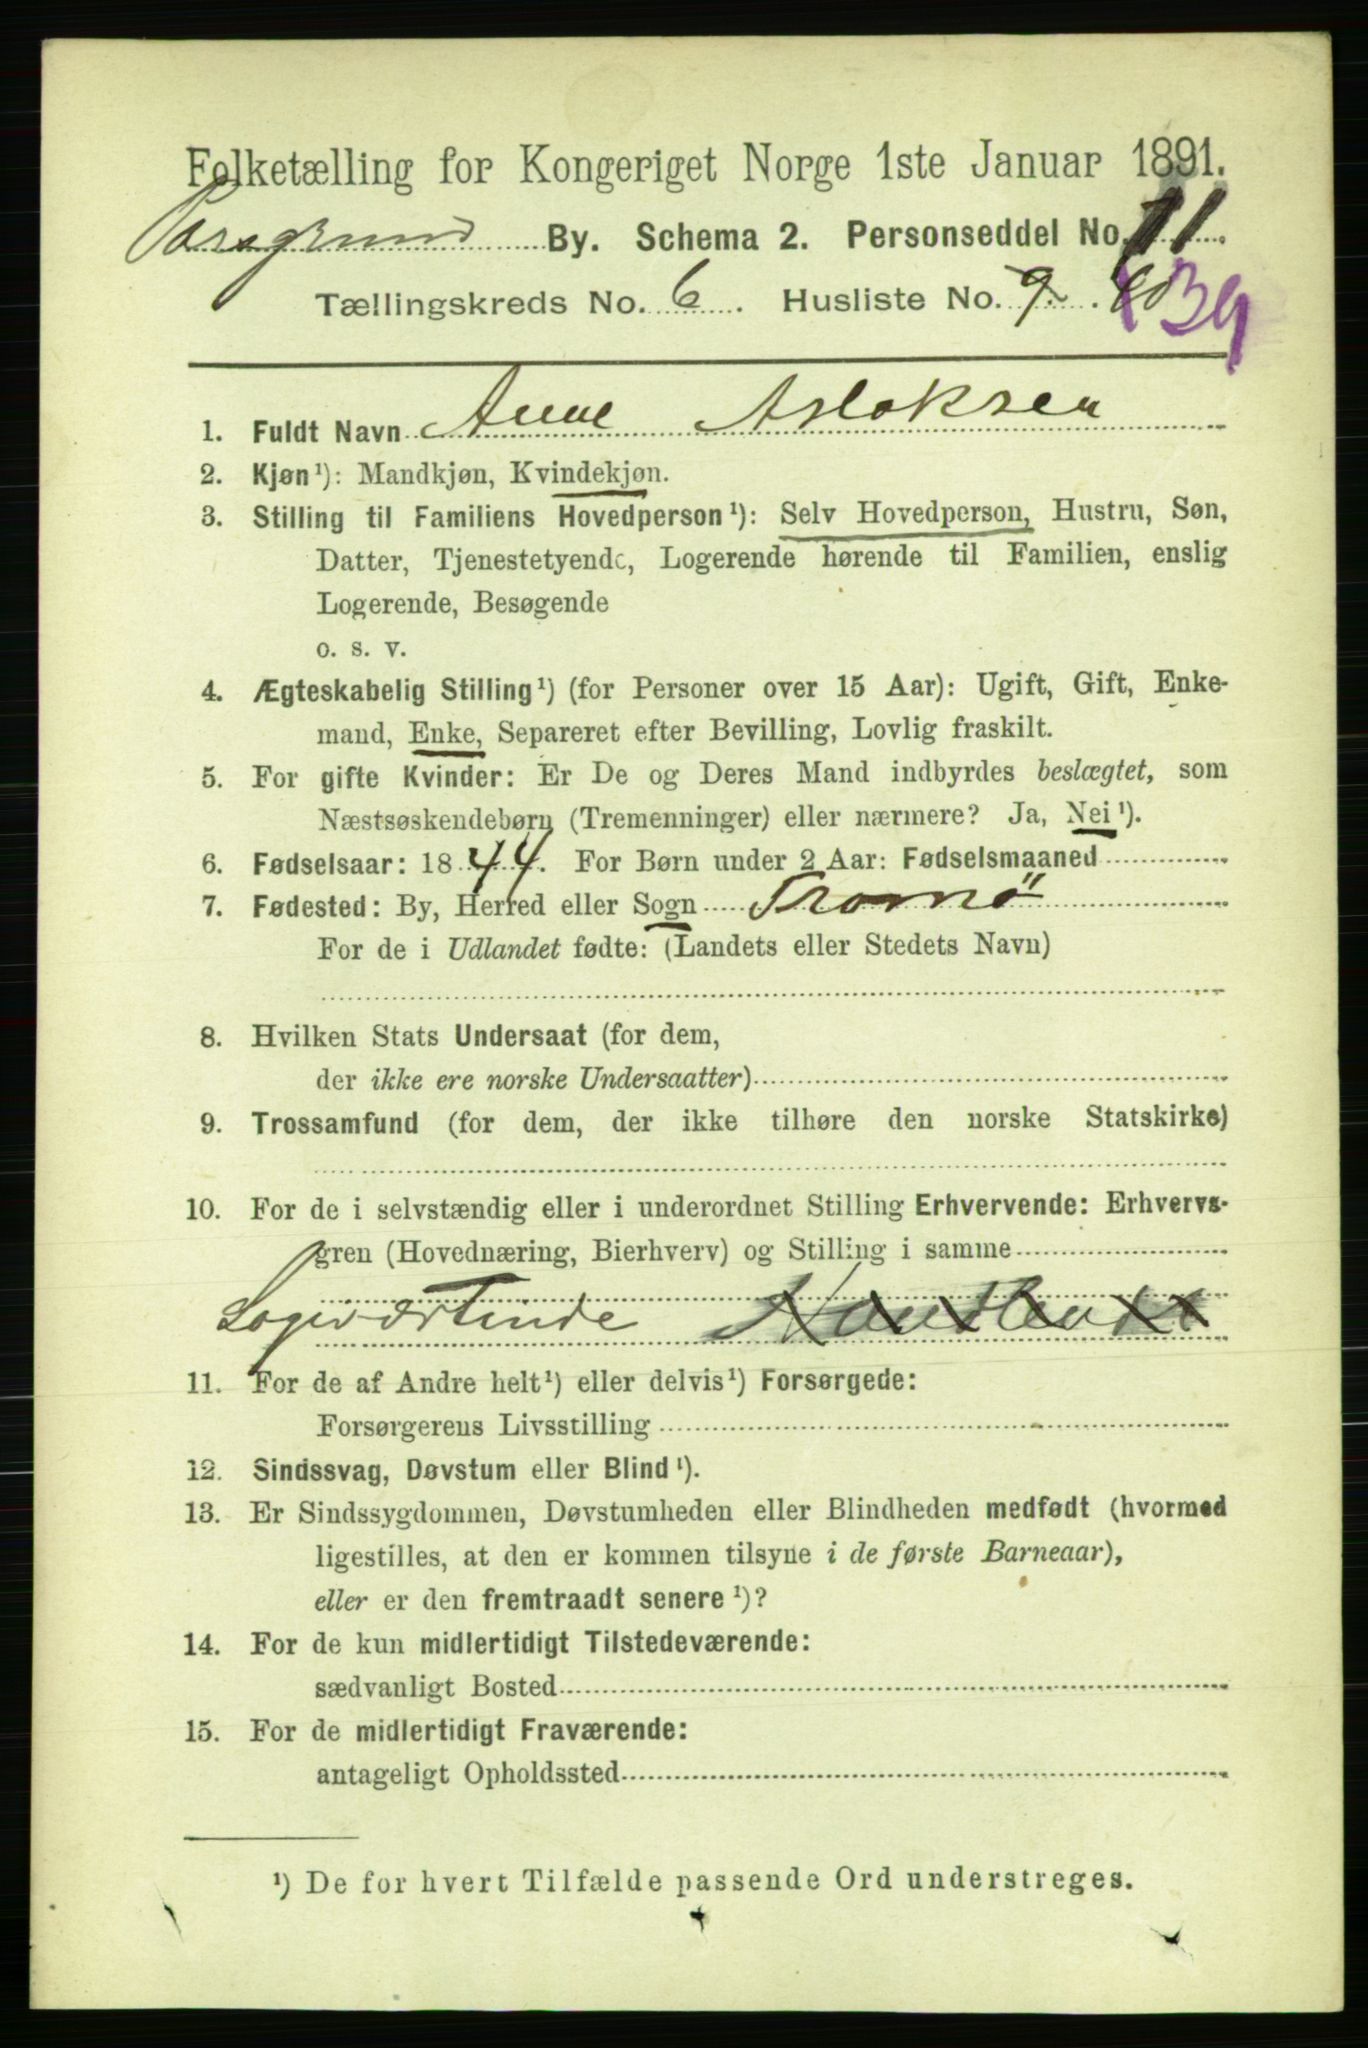 Folketælling for Kongeriget Norge 1ste Januar 1891.
Porsgrund By. Schema 2. Personseddel No. 11.
Tællingskreds No. 6. Husliste No. 9.
1. Fuldt Navn Anne Aslaksen
2. Kjøn¹): Mandkjøn, Kvindekjøn.
3. Stilling til Familiens Hovedperson¹): Selv Hovedperson, Hustru, Søn,
Datter, Tjenestetyende, Logerende hørende til Familien, enslig
Logerende, Besøgende
o. s. v.
4. Ægteskabelig Stilling¹) (for Personer over 15 Aar): Ugift, Gift, Enke-
mand, Enke, Separeret efter Bevilling, Lovlig fraskilt.
5. For gifte Kvinder: Er De og Deres Mand indbyrdes beslægtet, som
Næstsøskendebørn (Tremenninger) eller nærmere? Ja, Nei¹).
6. Fødselsaar: 1844. For Børn under 2 Aar: Fødselsmaaned
7. Fødested: By, Herred eller Sogn Tromö
For de i Udlandet fødte: (Landets eller Stedets Navn)
8. Hvilken Stats Undersaat (for dem,
der ikke ere norske Undersaatter)
9. Trossamfund (for dem, der ikke tilhøre den norske Statskirke)
10. For de i selvstændig eller i underordnet Stilling Erhvervende: Erhvervs-
gren (Hovednæring, Bierhverv) og Stilling i samme
Logiværtinde
11. For de af Andre helt¹) eller delvis¹) Forsørgede:
Forsørgerens Livsstilling
12. Sindssvag, Døvstum eller Blind¹).
13. Er Sindssygdommen, Døvstumheden eller Blindheden medfødt (hvormed
ligestilles, at den er kommen tilsyne i de første Barneaar),
eller er den fremtraadt senere¹)?
14. For de kun midlertidigt Tilstedeværende:
sædvanligt Bosted
15. For de midlertidigt Fraværende:
antageligt Opholdssted
¹) De for hvert Tilfælde passende Ord understreges.